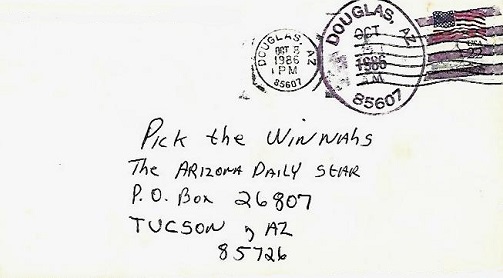 DOUGLAS, AZ
OCT 8
1986
1 PM
85607
DOUGLAS, AZ
OCT
1986
85607
USA 22
Pick the Winnahs
The ARIZONA DAILY STAR
P.O. Box 26807
TUCSON, AZ
85726